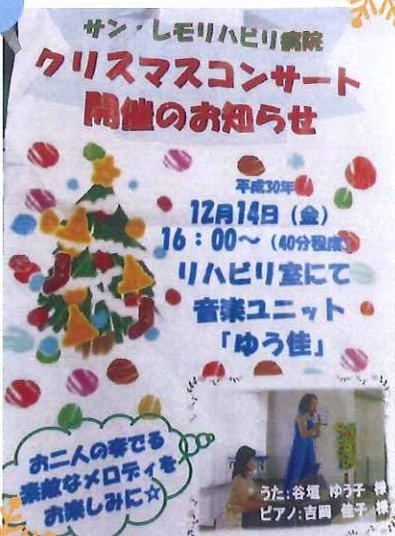 サン・レモリハビリ病院
クリスマスコンサート
開催のお知らせ
平成30年
12月14日（金）
16：00〜（40分程度）
リハビリ室にて
音楽ユニット
「ゆう佳」
お二人の奏でる
素敵なメロディを
お楽しみに☆
うた:谷垣 ゆう子 様
ピアノ:吉岡 佳子 様